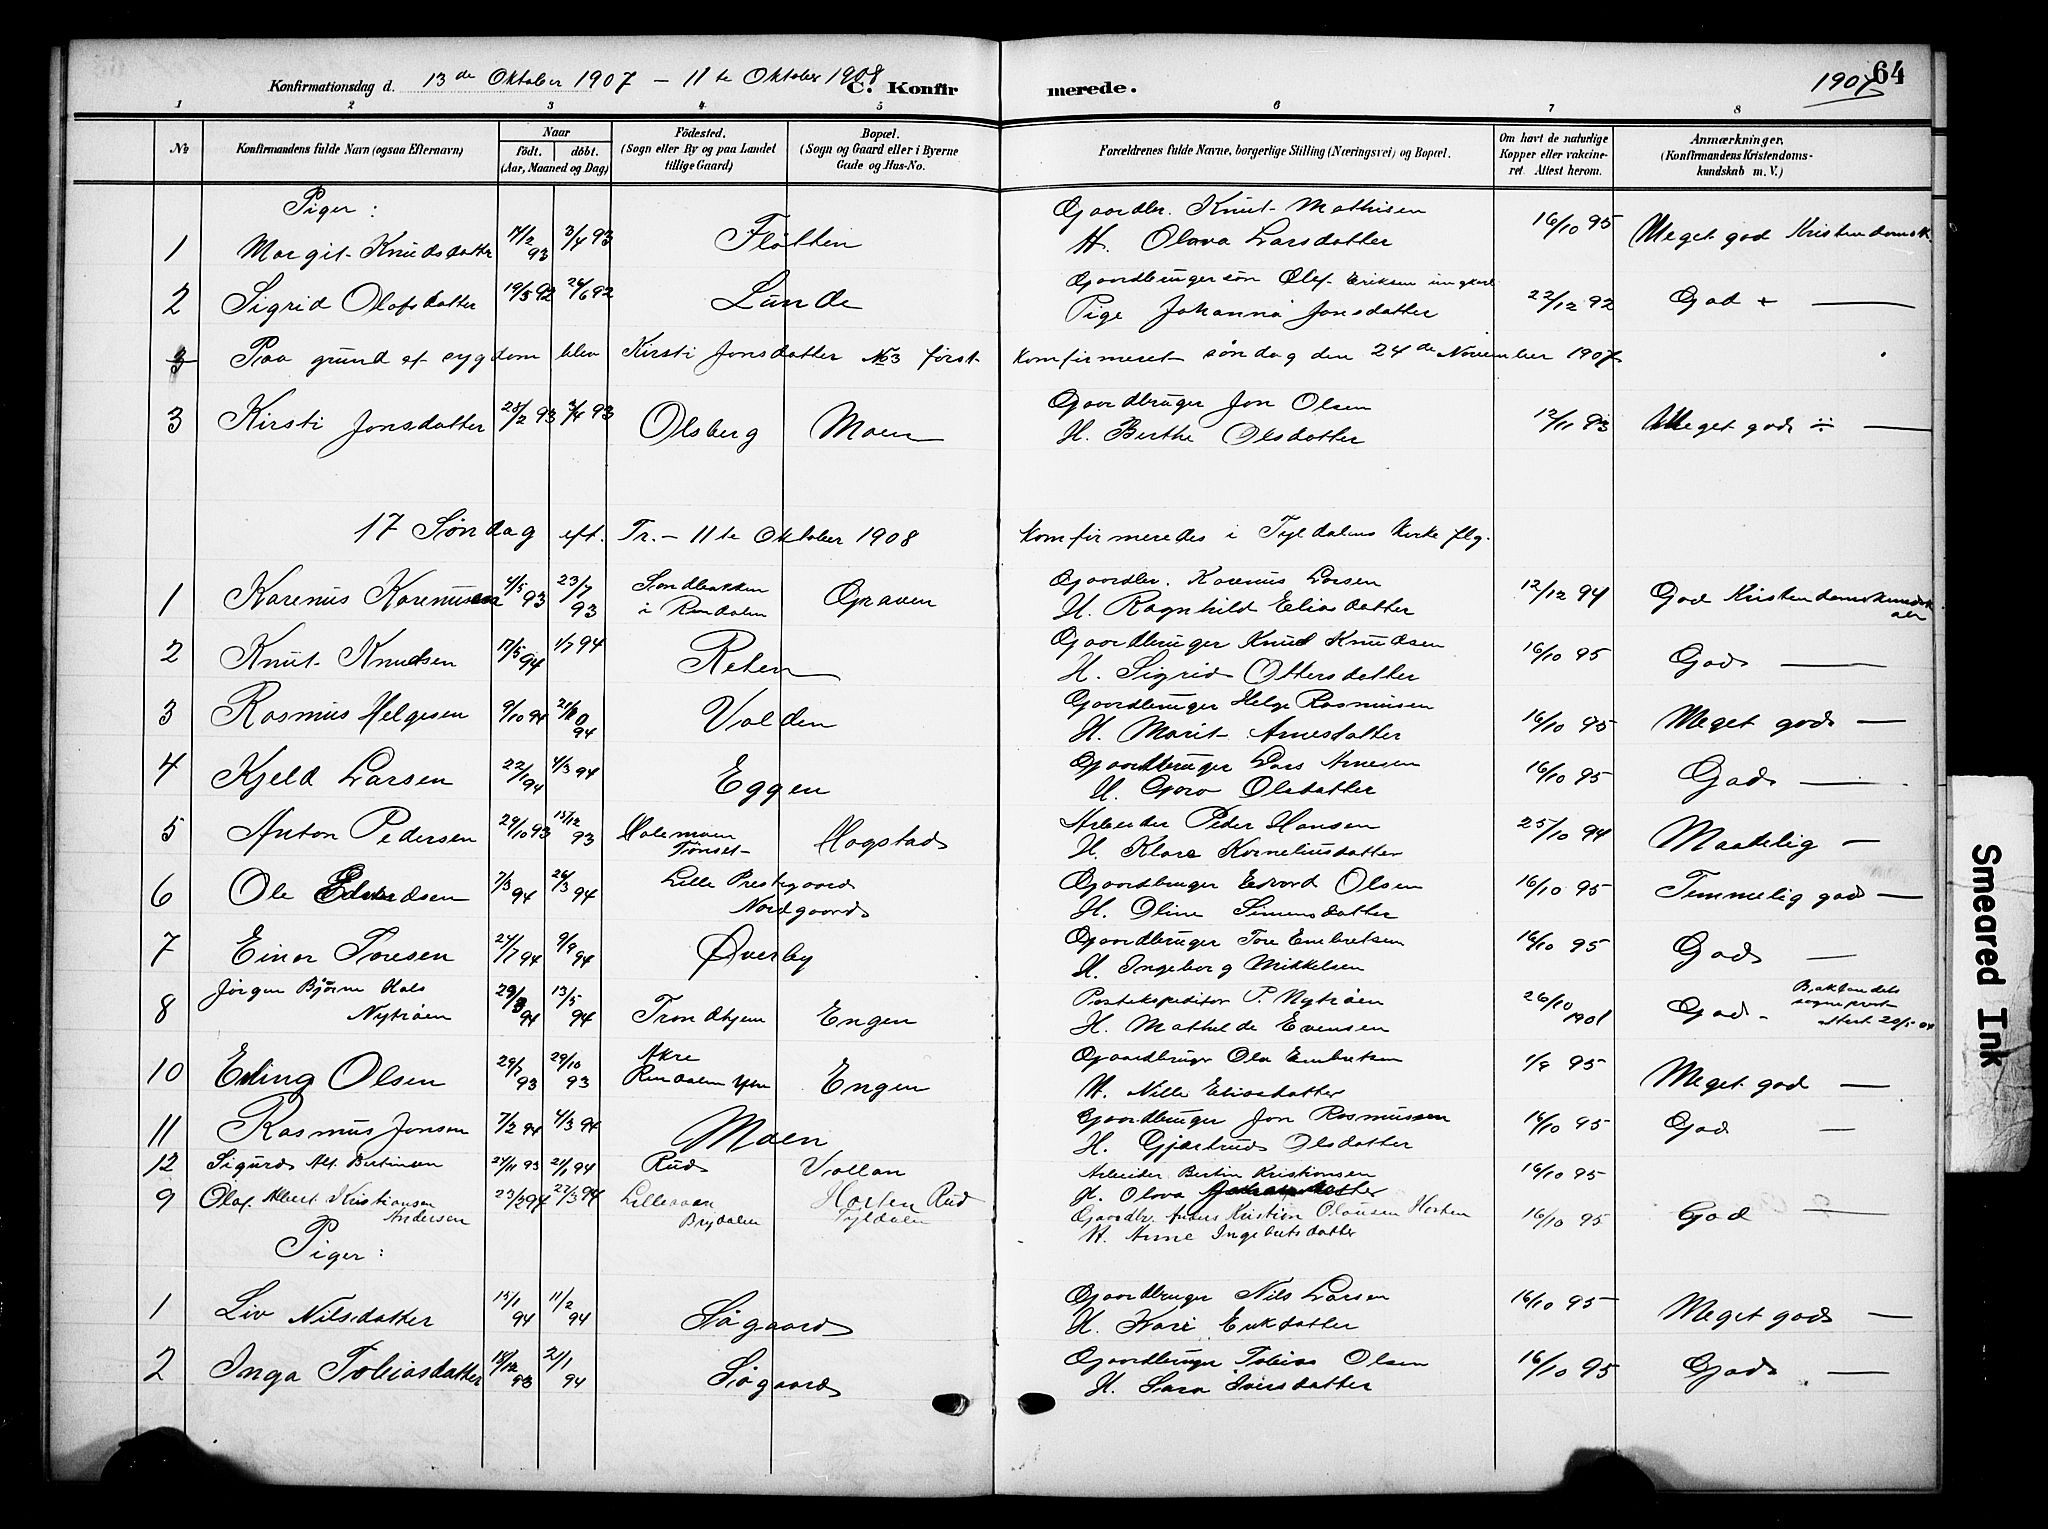 Konfirmationsdag d. 13de Oktober 1907 – 11te Oktober 1908 C. Konfirmerede. 1907 64
1 2 3 4 5 6 7 8
No
Konfirmandens fulde Navn (ogsaa Efternavn)
Naar
født. døbt.
(Aar, Maaned og Dag)
Fødested.
(Sogn eller By og paa Landet
tillige Gaard)
Bopæl.
(Sogn og Gaard eller i Byerne
Gade og Hus-No.
Forældrenes fulde Navne, borgerlige Stilling (Næringsvei) og Bopæl.
Om havt de naturlige
Kopper eller vakcine-
ret. Attest herom.
Anmærkninger,
(Konfirmandens Kristendoms-
kundskab m. V.)
Piger:
1 Margit Knudsdatter 17/2 93 3/4 93 Fløtten
Gaardbr. Knut Mathisen
H. Olava Larsdatter 16/10 95 Meget god Kristendomsk.
2 Sigrid Olafsdatter 19/5 92 26/6 92 Lunde
Gaardbrugersøn Olaf Eriksen ungkarl
Pige Johanna Jonsdatter 22/12 92 God + —
3 Paa grund af sygdom blev Kirsti Jonsdatter No 3 først konfirmeret søndag den 24de November 1907.
3 Kirsti Jonsdatter 28/2 93 3/4 93 Olsberg Moen
Gaardbruger Jon Olsen
H. Berthe Olsdatter 12/11 93 Meget god ÷ —
17 Søndag eft. Tr. – 11te Oktober 1908 konfirmeredes i Tyldalens Kirke flg.
1 Karenus Karenussen 4/5 93 23/7 93 Sandbakken
i Rendalen Graven
Gaardbr. Karenus Larsen
H. Ragnhild Eliasdatter 12/12 94 God Kristendomskundsk
2 Knut Knudsen 17/5 94 1/7 94 Reten
Gaardbruger Knud Knudsen
H. Sigrid Ottersdatter 16/10 95 God —
3 Rasmus Helgesen 9/10 94 94 Volden
Gaardbruger Helge Rasmusen
H. Marit Arnesdatter 16/10 95 Meget god —
4 Kjeld Larsen 22/1 94 4/3 94 Eggen
Gaardbruger Lars Arnesen
H. Goro Olsdatter 16/10 95 God —
5 Anton Pedersen 29/10 93 13/12 93 Holemoen
Tønset Hogstad
Arbeider Peder Hansen
H. Klara Korneliusdatter 25/10 94 Maadelig —
6 Ole Edvardsen 7/3 94 26/3 94 Lille Prestgaard
Nordgaard
Gaardbruger Edvard Olsen
H. Oline Simensdatter 16/10 95 Temmelig god —
7 Einar Toresen 24/7 94 9/9 94 Øverby
Gaardbruger Tore Embretsen
H. Ingeborg Mikkelsen 16/10 95 God —
8 Jørgen Bjørne Hals
Nytrøen 94 13/5 94 Trondhjem Engen
Postekspeditør P. Nytrøen
H. Mathilde Evensen 26/10 1901 God –
Bakklandets
sogneprest
attest 20/5 04
10 Erling Olsen 29/7 93 29/10 93 Akre
Rendalen Engen
Gaardbruger Ola Embretsen
H. Nille Eliasdatter 1/8 95 Meget god —
11 Rasmus Jonsen 7/2 94 4/3 94 Moen
Gaardbruger Jon Rasmussen
H. Gjertrud Olsdatter 16/10 95 God —
12 Sigurd Alf. Bertinsen 24/11 93 21/1 94 Rud Vollan
Arbeider Bertin Kristiansen
H. Olava 16/10 95
9 Olaf Albert Kristiansen
Andersen 23/2 94 27/3 94 Lilleroaen
Brydalen Horten Rud
Tyldalen
Gaardbr. Anders Kristian Olausen Horten
H. Anne Ingebretsdatter 16/10 95 God —
Piger:
1 Liv Nilsdatter 15/1 94 11/2 94 Søgaard
Gaardbruger Nils Larsen
H. Kari Erikdatter 16/10 95 Meget god —
2 Inga Tobiasdatter 18/12 93 21/1 94 Søgaard
Gaardbruger Tobias Olsen
H. Sara Iversdatter 16/10 95 God —
Smeared Ink